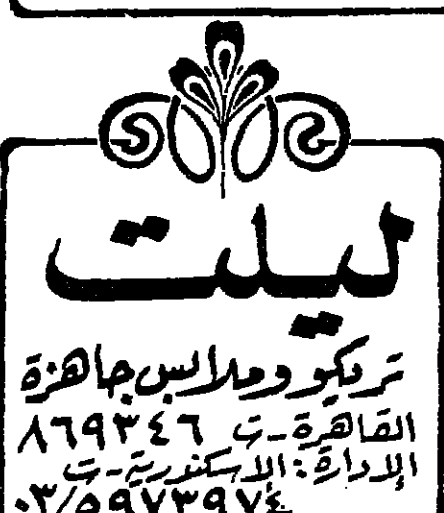 ليلت
تريكو وملابس جاهزة
القاهرة - ت ٨٦٩٣٤٦
الإدارة : الاسكندرية - ت
٠٣/٥٩٧٣٩٧٤